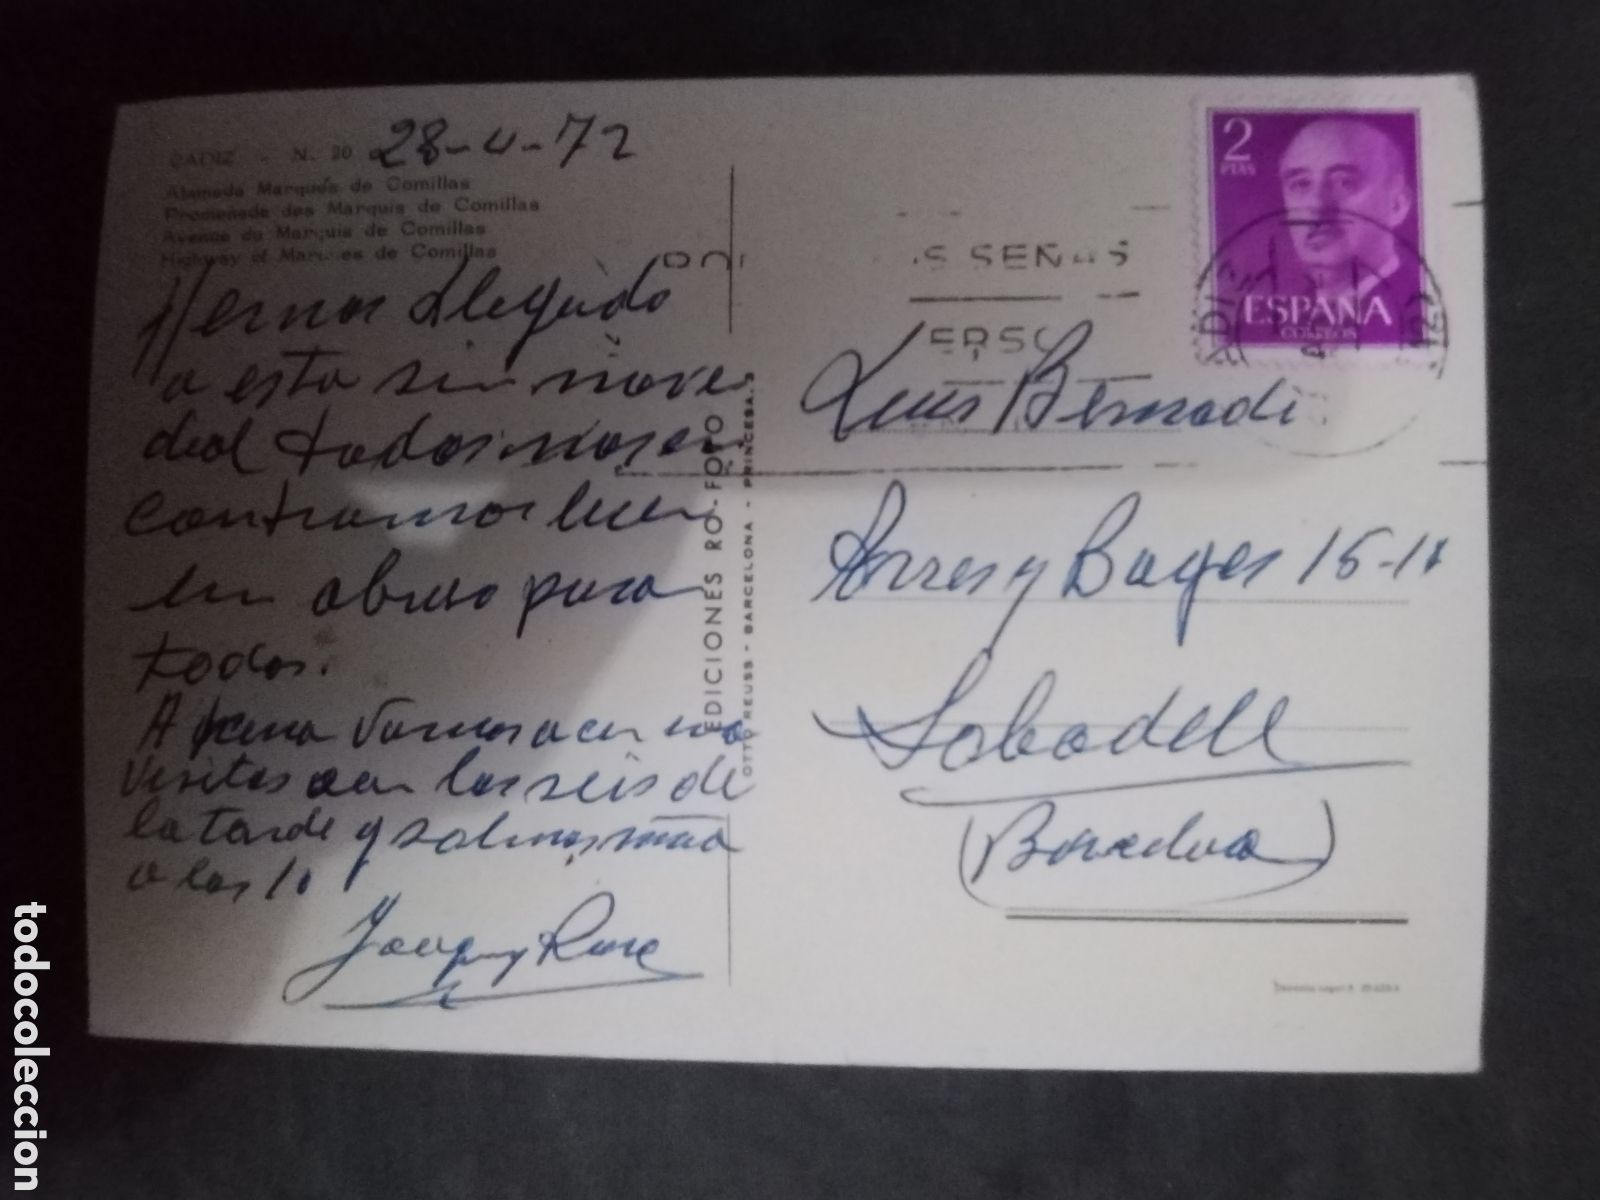 CADIZ - N. 20
28-4-72
Alameda Marqués de Comillas
Promenade des Marquis de Comillas
Avenue du Marquis de Comillas
Highway of Marques de Comillas
Hemos Llegado
a esta sin nove
dad todos nos en
contramos bien
un abraso para
todos.
Vamos a
visitas a las seis de
la tarde y salimos
a las 10
EDICIONES RO-FOTO
OTTO REUSS - BARCELONA - PRINCESA, 9
2
PTAS
ESPAÑA
CORREOS
S SEÑAS
ERSO
Luis Bernadi
Torres y Bages 15-1º
Sabadell
(Barcelona)
todocoleccion